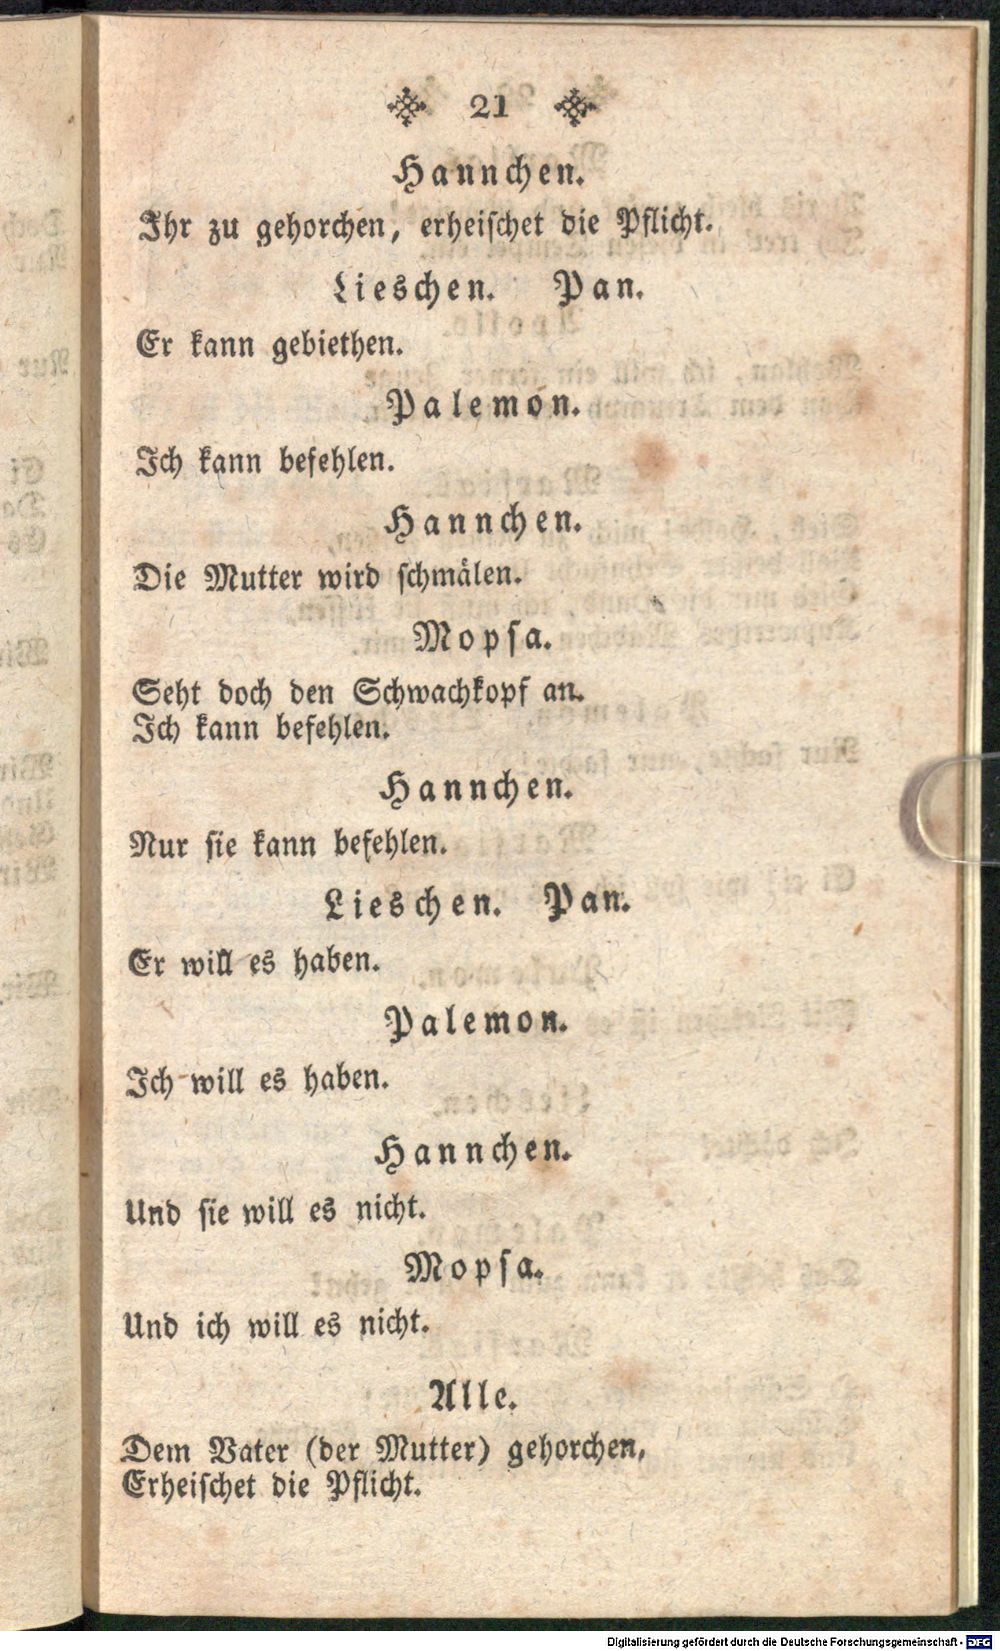 21
Hannchen.
Ihr zu gehorchen, erheischet die Pflicht.
Lieschen. Pan.
Er kann gebiethen.
Palemon.
Ich kann befehlen.
Hannchen.
Die Mutter wird schmälen.
Mopsa.
Seht doch den Schwachkopf an.
Ich kann befehlen.
Hannchen.
Nur sie kann befehlen.
Lieschen. Pan.
Er will es haben.
Palemon.
Ich will es haben.
Hannchen.
Und sie will es nicht.
Mopsa.
Und ich will es nicht.
Alle.
Dem Vater (der Mutter) gehorchen,
Erheischet die Pflicht.
Digitalisierung gefördert durch die Deutsche Forschungsgemeinschaft - DFG